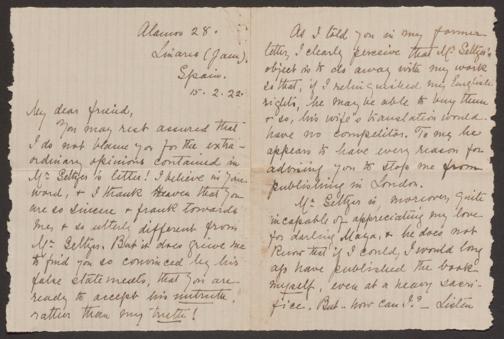 Alamos 28.
Linares (Jaen),
Spain.
15.2.22.
My dear friend,
You may rest assured that
I do not blame you for the extra-
ordinary opinions contained in
Mr Seltzer's letter! I believe in your
word, & I thank Heaven that you
are so sincere & frank towards
me, & so utterly different from
Mr Seltzer. But it does grieve me
to find you so convinced by his
false statements, that you are
ready to accept his untruths,
rather than my truth!
As I told you in my former
letter, I clearly perceive that Mr Seltzer's
object is to do away with my work
so that, if I relinquished my English
rights, he may be able to buy them
& so, his wife's translation would
have no competitor. To me he
appears to have every reason for
advising you to stop me from
publishing in London.
Mr Seltzer is, moreover, quite
incapable of appreciating my love
for darling Maya, & he does not
know that if I could, I would long
ago have published the book
myself, even at a heavy sacri-
fice. But – how can I? – Listen